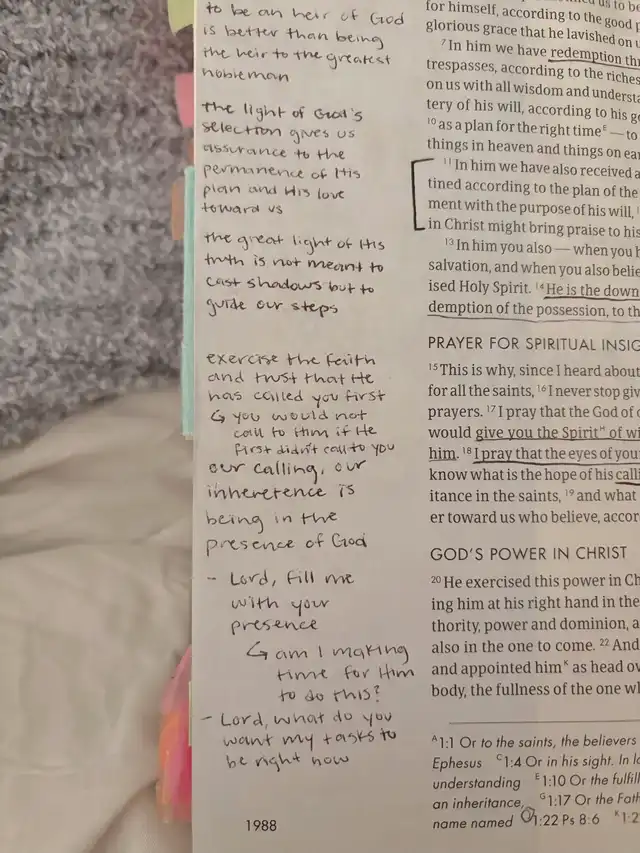 to be an heir of God
is better than being
the heir to the greatest
nobleman
the light of God's
selection gives us
assurance to the
permanence of His
plan and His love
toward us
the great light of His
truth is not meant to
cast shadows but to
guide our steps
exercise the faith
and trust that He
has called you first
↳ you would not
call to Him if He
first didn't call to you
our calling, our
inheretence is
being in the
presence of God
- Lord, fill me
with your
presence
↳ am I making
time for Him
to do this?
- Lord, what do you
want my tasks to
be right now
1988
for himself, according to the good
glorious grace that he lavished on
7 In him we have redemption
trespasses, according to the riches
on us with all wisdom and
tery of his will, according to his
10 as a plan for the right timeE — to
things in heaven and things on
11 In him we have also received
tined according to the plan of the
ment with the purpose of his will,
in Christ might bring praise to his
13 In him you also — when you
salvation, and when you also
ised Holy Spirit. 14 He is the down
demption of the possession, to
PRAYER FOR SPIRITUAL
15 This is why, since I heard about
for all the saints, 16 I never stop
prayers. 17 I pray that the God of
would give you the SpiritH of
him. 18 I pray that the eyes of
know what is the hope of his
itance in the saints, 19 and what
er toward us who believe,
GOD'S POWER IN CHRIST
20 He exercised this power in
ing him at his right hand in the
thority, power and dominion,
also in the one to come. 22 And
and appointed himK as head
body, the fullness of the one
A1:1 Or to the saints, the believers
Ephesus C1:4 Or in his sight. In
understanding E1:10 Or the
an inheritance, G1:17 Or the
name named 1:22 Ps 8:6